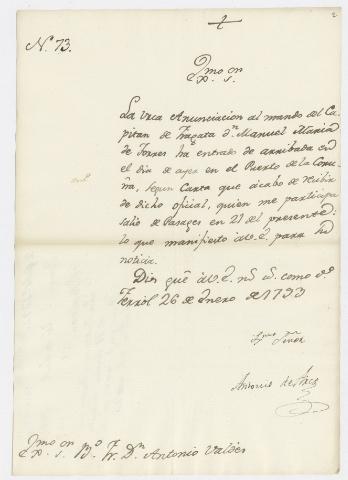 2
N.º 73.
Exmo. Sor.
La Urca Anunciacion al mando del Ca-
pitan de Fragata Dn. Manuel Maria
de Torres ha entrado de arribada en
el dia de ayer en el Puerto de la Coru-
ña, segun Carta que acabo de recibir
de dicho oficial, quien me participa
salio de Pasages en 21 del presente:
lo que manifiesto à V. E. para su
noticia.
Dios gue. à V. E. ms. as. como deseo
Ferrol 26 de Enero de 1793
Exmo. Señor
Antonio de Arce
Exmo. Sor. Bo. Fr. Dn. Antonio Valdés